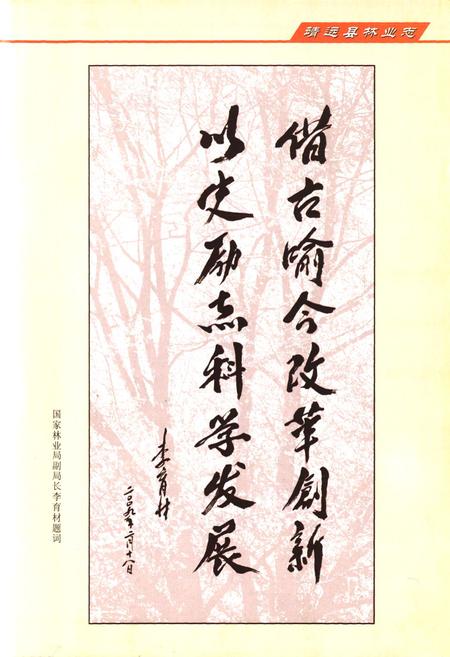 靖远县林业志
借古喻今改革創新
以史励志科学发展
李育材
二〇〇九年二月十八日
国家林业局副局长李育材题词